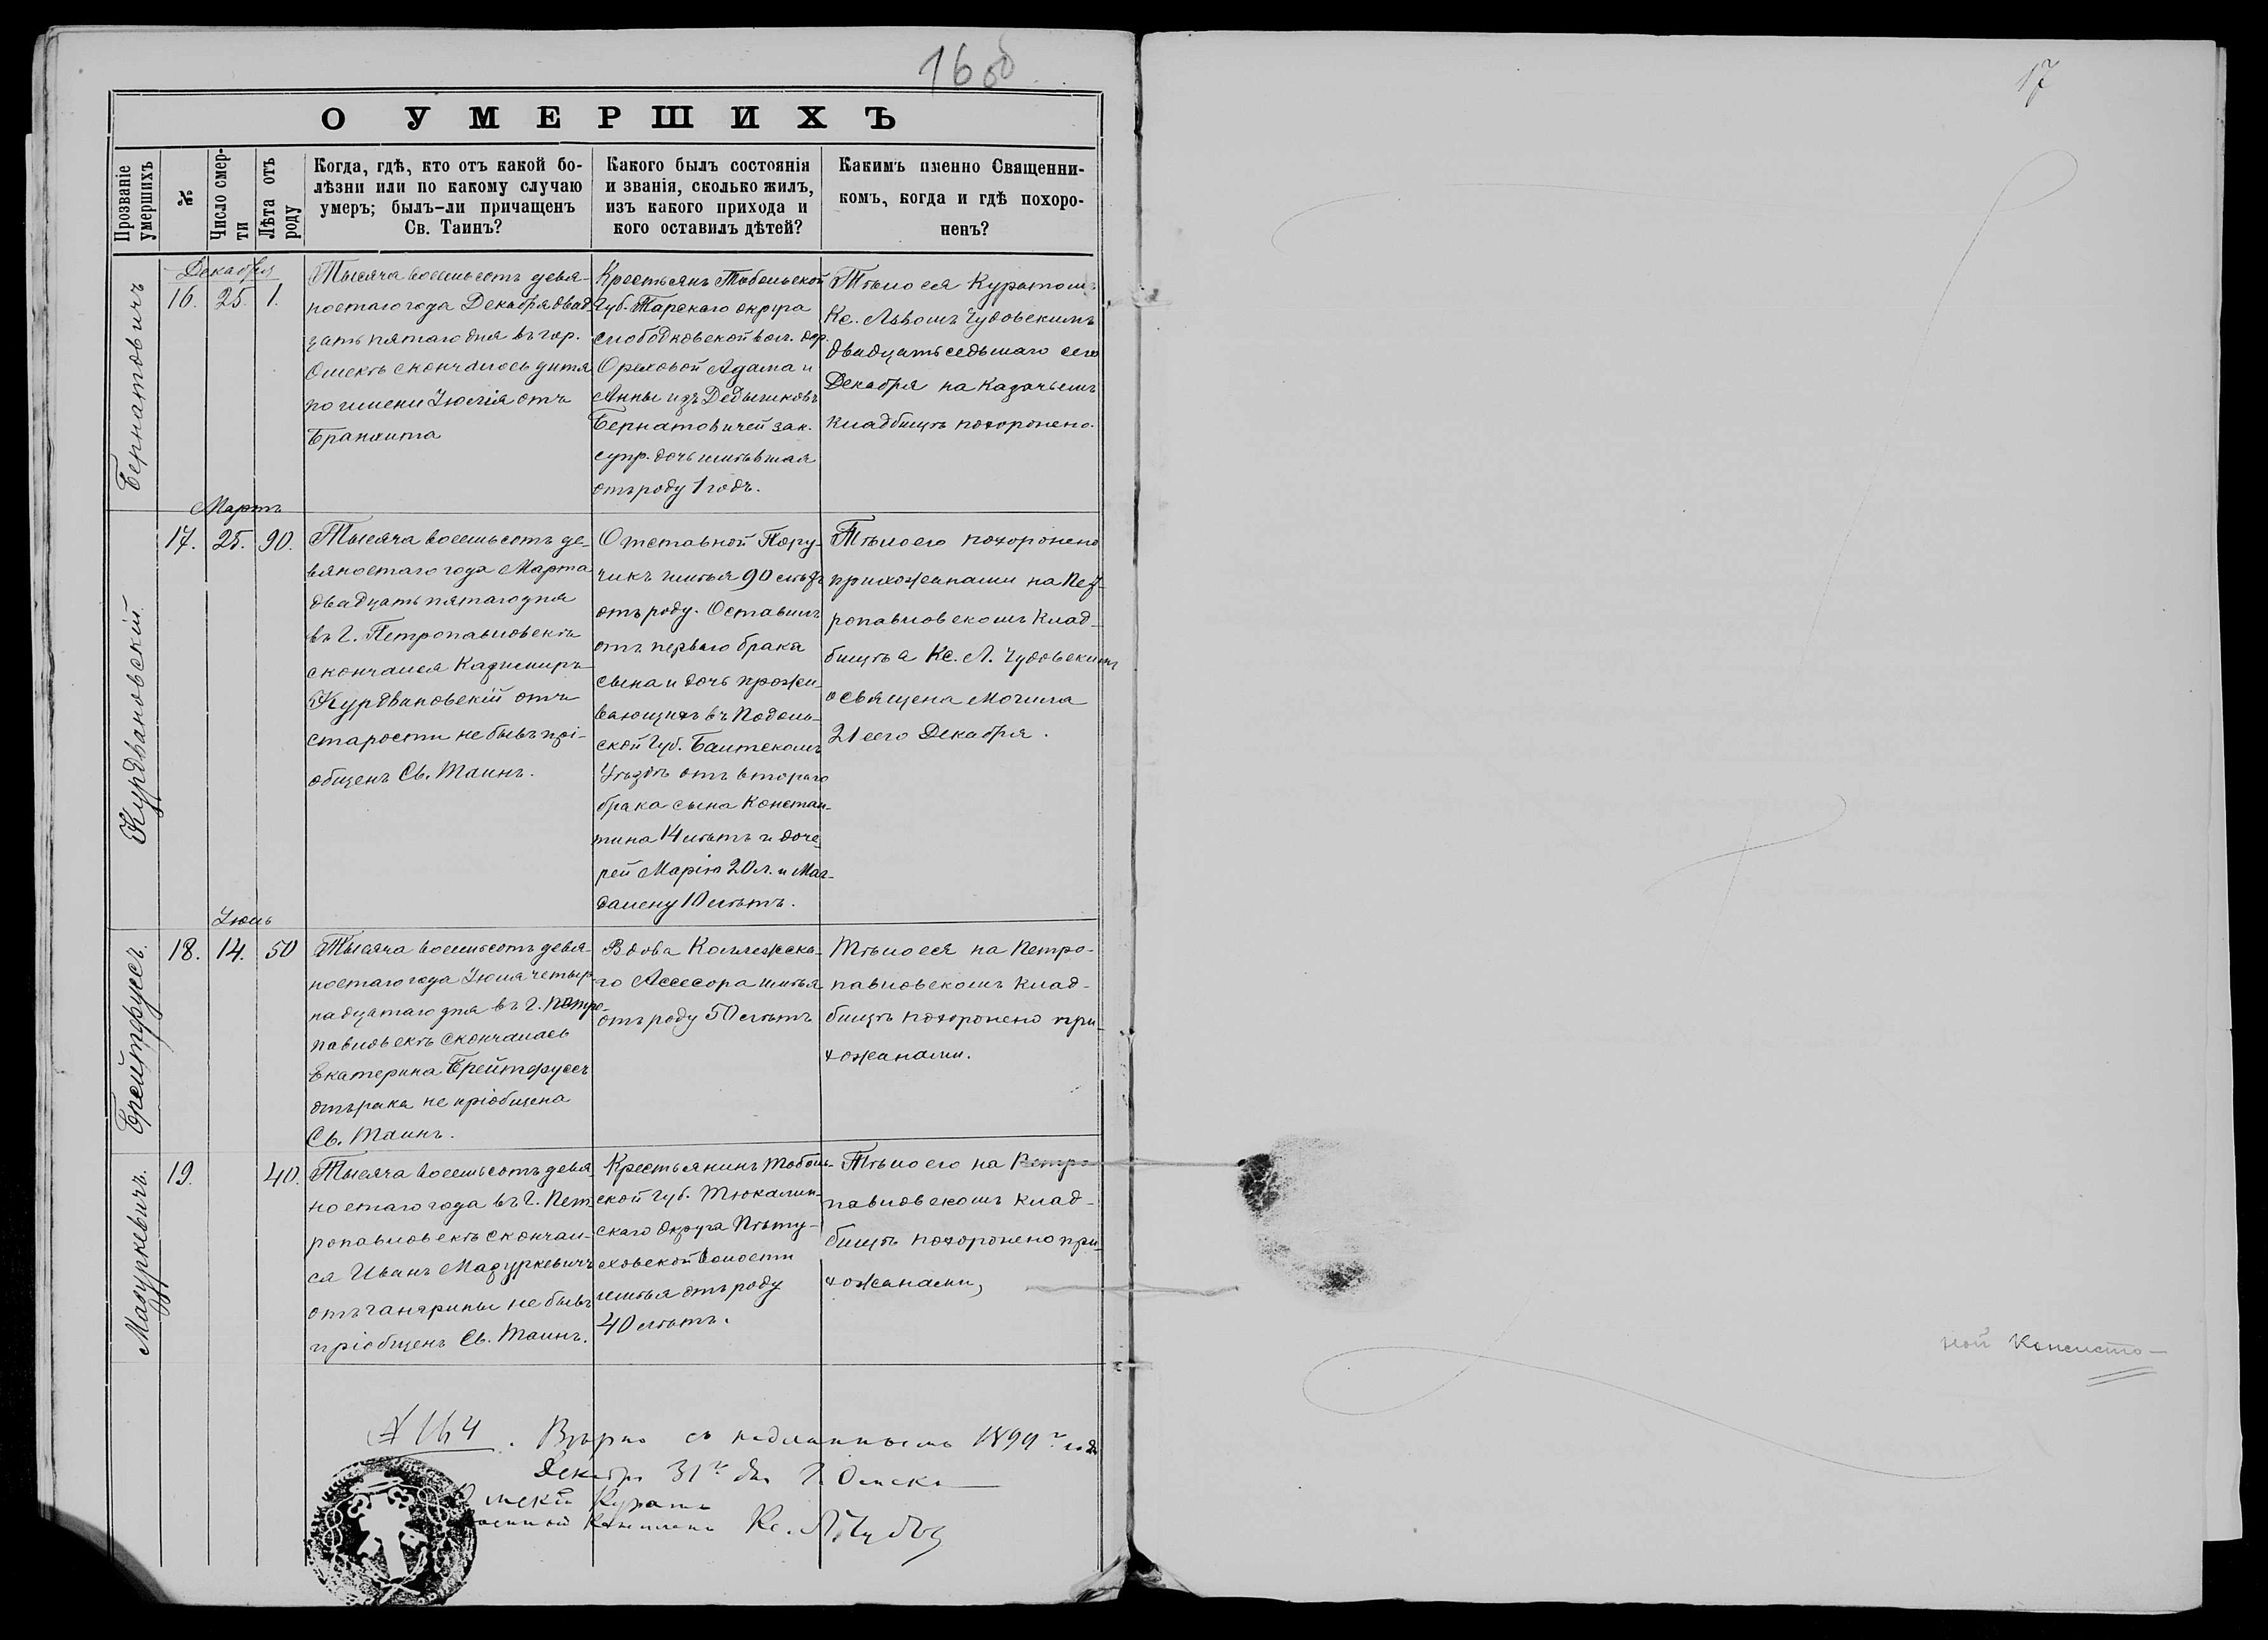 16 об
17
О УМЕРШИХЪ
Прозваніе умершихъ
№
Число смер-
ти
Лѣта отъ
роду
Когда, гдѣ, кто отъ какой бо-
лѣзни или по какому случаю
умеръ; былъ-ли причащенъ
Св. Таинъ?
Какого былъ состоянія
и званія, сколько жилъ,
изъ какого прихода и
кого оставилъ дѣтей?
Какимъ именно Священни-
комъ, когда и гдѣ похоро-
ненъ?
Бернатовичъ
Декабря
16. 25. 1.
Тысяча восемьсотъ девя-
ностаго года Декабря двад-
цать пятаго дня въ гор.
Омскѣ скончалось дитя
по имени Юлія отъ
Бранхита
Крестьянъ Тобольской
Губ. Тарскаго округа
слободковской вол. дер.
Ореховой Адама и
Анны изъ Дедышковъ
Бернатовичей зак.
супр. дочь имѣвшая
отъ роду 1 годъ.
Тѣло ея Куратомъ
Кс. Львомъ Чудовскимъ
двадцать седьмаго сего
Декабря на Казачьемъ
кладбищѣ похоронено.
Курдвановскій.
Мартъ
17. 25. 90.
Тысяча восемьсотъ де-
вяностаго года Марта
двадцать пятаго дня
въ г. Петропавловскѣ
скончался Казимиръ
Курдвановскій отъ
старости не бывъ прі-
общенъ Св. Таинъ.
Отставной Пору-
чикъ имѣя 90 лѣтъ
отъ роду. Оставилъ
отъ перваго брака
сына и дочь прожи-
вающихъ въ Подоль-
ской Губ. Балтскомъ
Уѣздѣ отъ втораго
брака сына Констан-
тина 14 лѣтъ и доче-
рей Марію 20 л. и Маг-
далену 10 лѣтъ.
Тѣло его похоронено
прихожанами на Пет-
ропавловскомъ клад-
бищѣ а Кс. Л. Чудовскимъ
освящена могила
21 сего Декабря.
Брейтфусъ.
Іюль
18. 14. 50
Тысяча восемьсотъ девя-
ностаго года Іюля четыр-
надцатаго дня въ г. Петро-
павловскѣ скончалась
Екатерина Брейтфусъ
отъ рака не пріобщена
Св. Таинъ.
Вдова Коллежска-
го Ассесора имѣя
отъ роду 50 лѣтъ
Тѣло ея на Петро-
павловскомъ клад-
бищѣ похоронено при-
хожанами.
Мазуркевичъ.
19. 40.
Тысяча восемьсотъ девя-
ностаго года въ г. Пет-
ропавловскѣ скончал-
ся Иванъ Мазуркевичъ
отъ гангрины не бывъ
пріобщенъ Св. Таинъ.
Крестьянинъ Тоболь-
ской Губ. Тюкалин-
скаго округа Пѣту-
ховской волости
имѣя отъ роду
40 лѣтъ.
Тѣло его на Петро-
павловскомъ клад-
бищѣ похоронено при-
хожанами,
№ 164. Вѣрно съ подлиннымъ 1890 г. года
Декабря 31 г. дня Г. Омскъ
Омскій Куратъ
военный Капеланъ Кс. Л. Чудовс
ной Консисто-